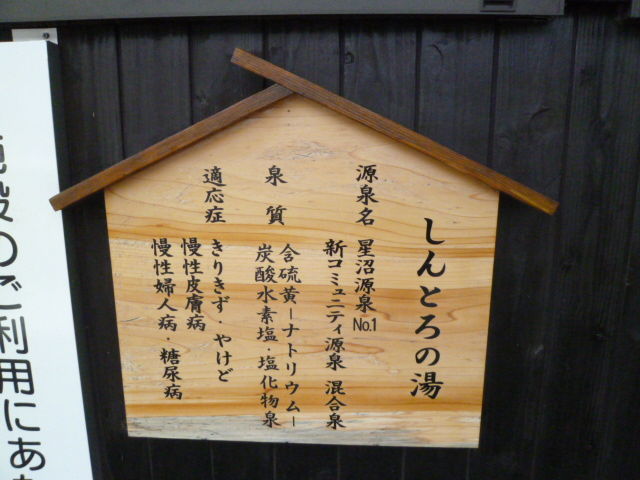 しんとろの湯
源泉名 星沼源泉No.1
新コミュニティ源泉 混合泉
泉質 含硫黄ーナトリウムー
炭酸水素塩・塩化物泉
適応症 きりきず・やけど
慢性皮膚病
慢性婦人病・糖尿病
設のご利用にあ